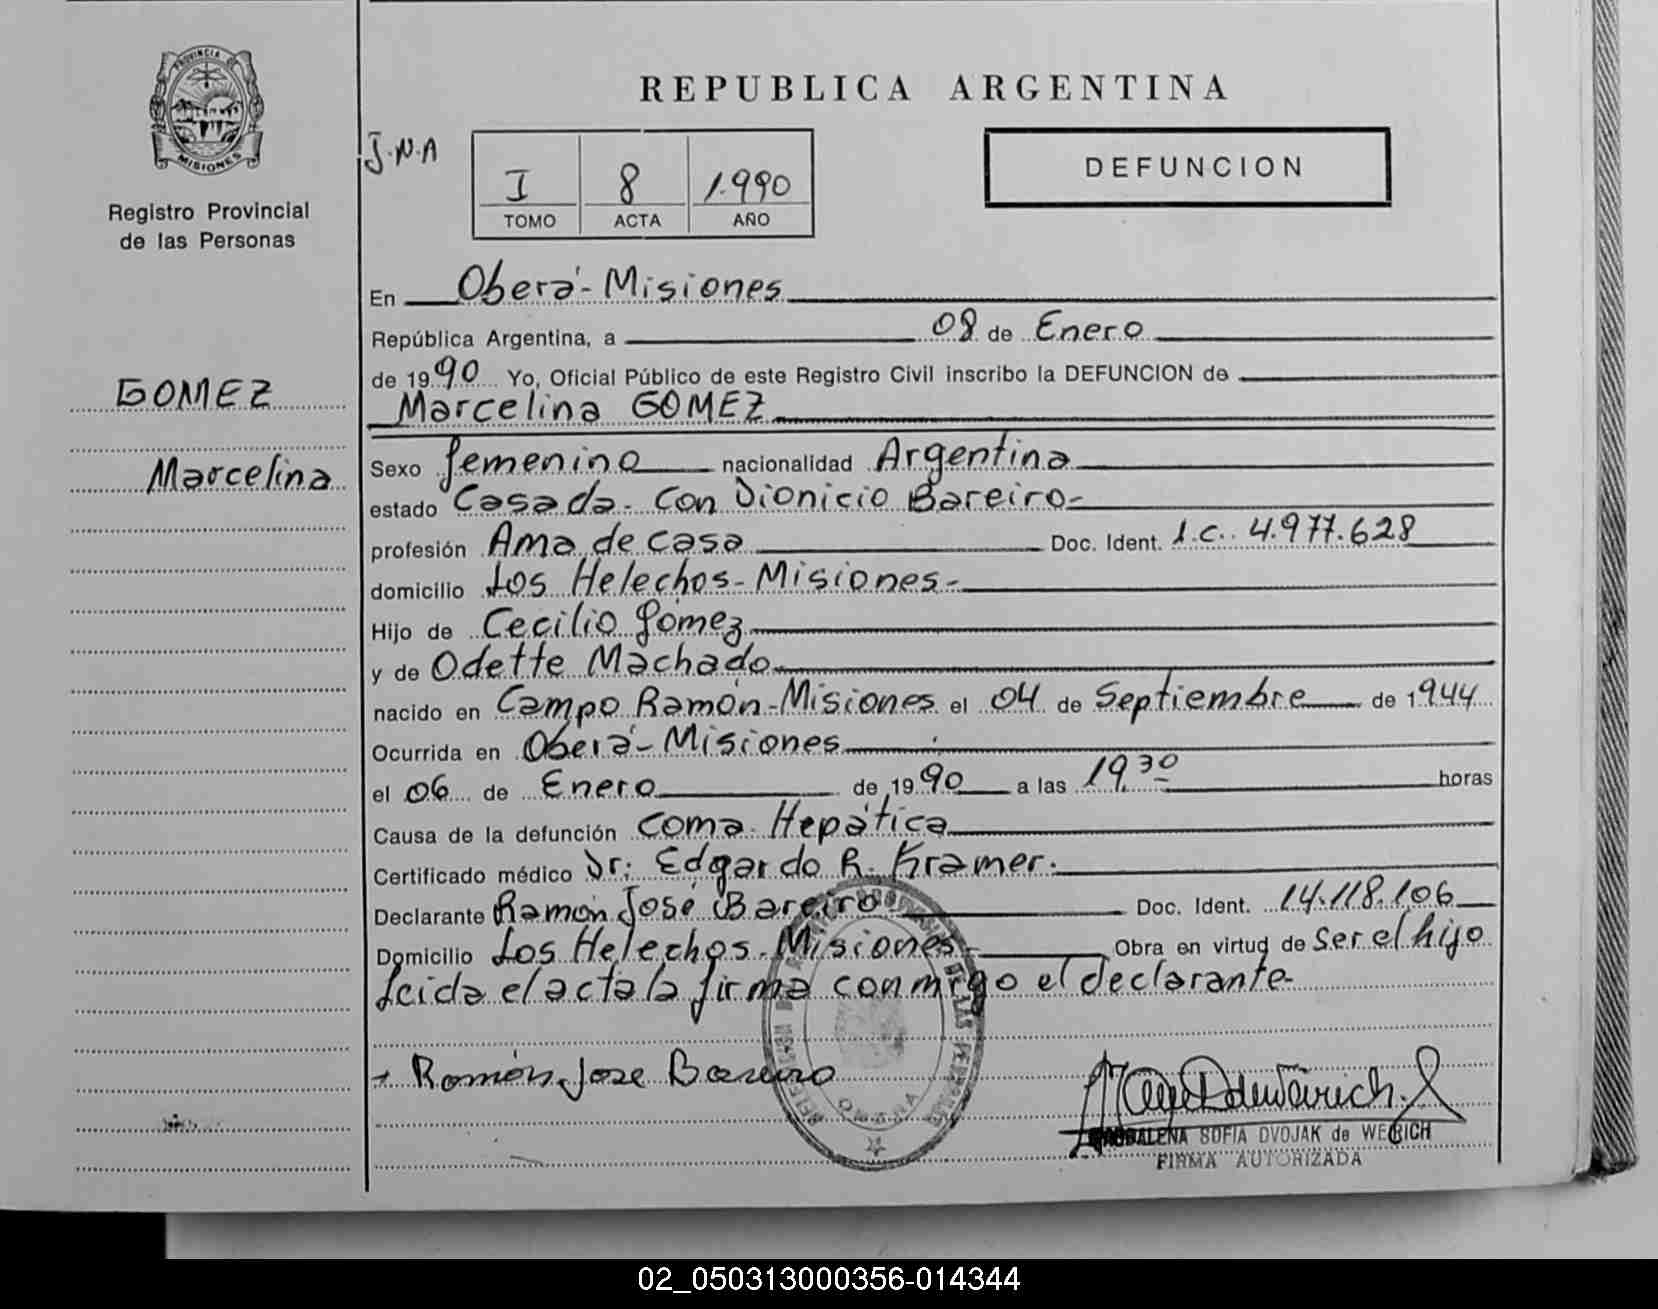 PROVINCIA DE
MISIONES
Registro Provincial
de las Personas
GOMEZ
Marcelina
REPUBLICA ARGENTINA
J.N.A
I 8 1.990
TOMO ACTA AÑO
DEFUNCION
En Oberá - Misiones
República Argentina, a 08 de Enero
de 1990 Yo, Oficial Público de este Registro Civil inscribo la DEFUNCION de
Marcelina GOMEZ
Sexo femenino nacionalidad Argentina
estado Casada - Con Dionicio Bareiro -
profesión Ama de casa Doc. Ident. L.C. 4.977.628
domicilio Los Helechos - Misiones -
Hijo de Cecilio Gómez
y de Odette Machado
nacido en Campo Ramón - Misiones el 04 de Septiembre de 1944
Ocurrida en Oberá - Misiones
el 06 de Enero de 1990 a las 19,30 horas
Causa de la defunción Coma Hepática
Certificado médico Dr: Edgardo R. Kramer.
Declarante Ramón José Bareiro Doc. Ident. 14.118.106
Domicilio Los Helechos - Misiones - Obra en virtud de Ser el hijo
Leida el acta la firma conmigo el declarante -
+ Ramón Jose Bareiro
MAGDALENA SOFIA DVOJAK de WERICH
FIRMA AUTORIZADA
02_050313000356-014344